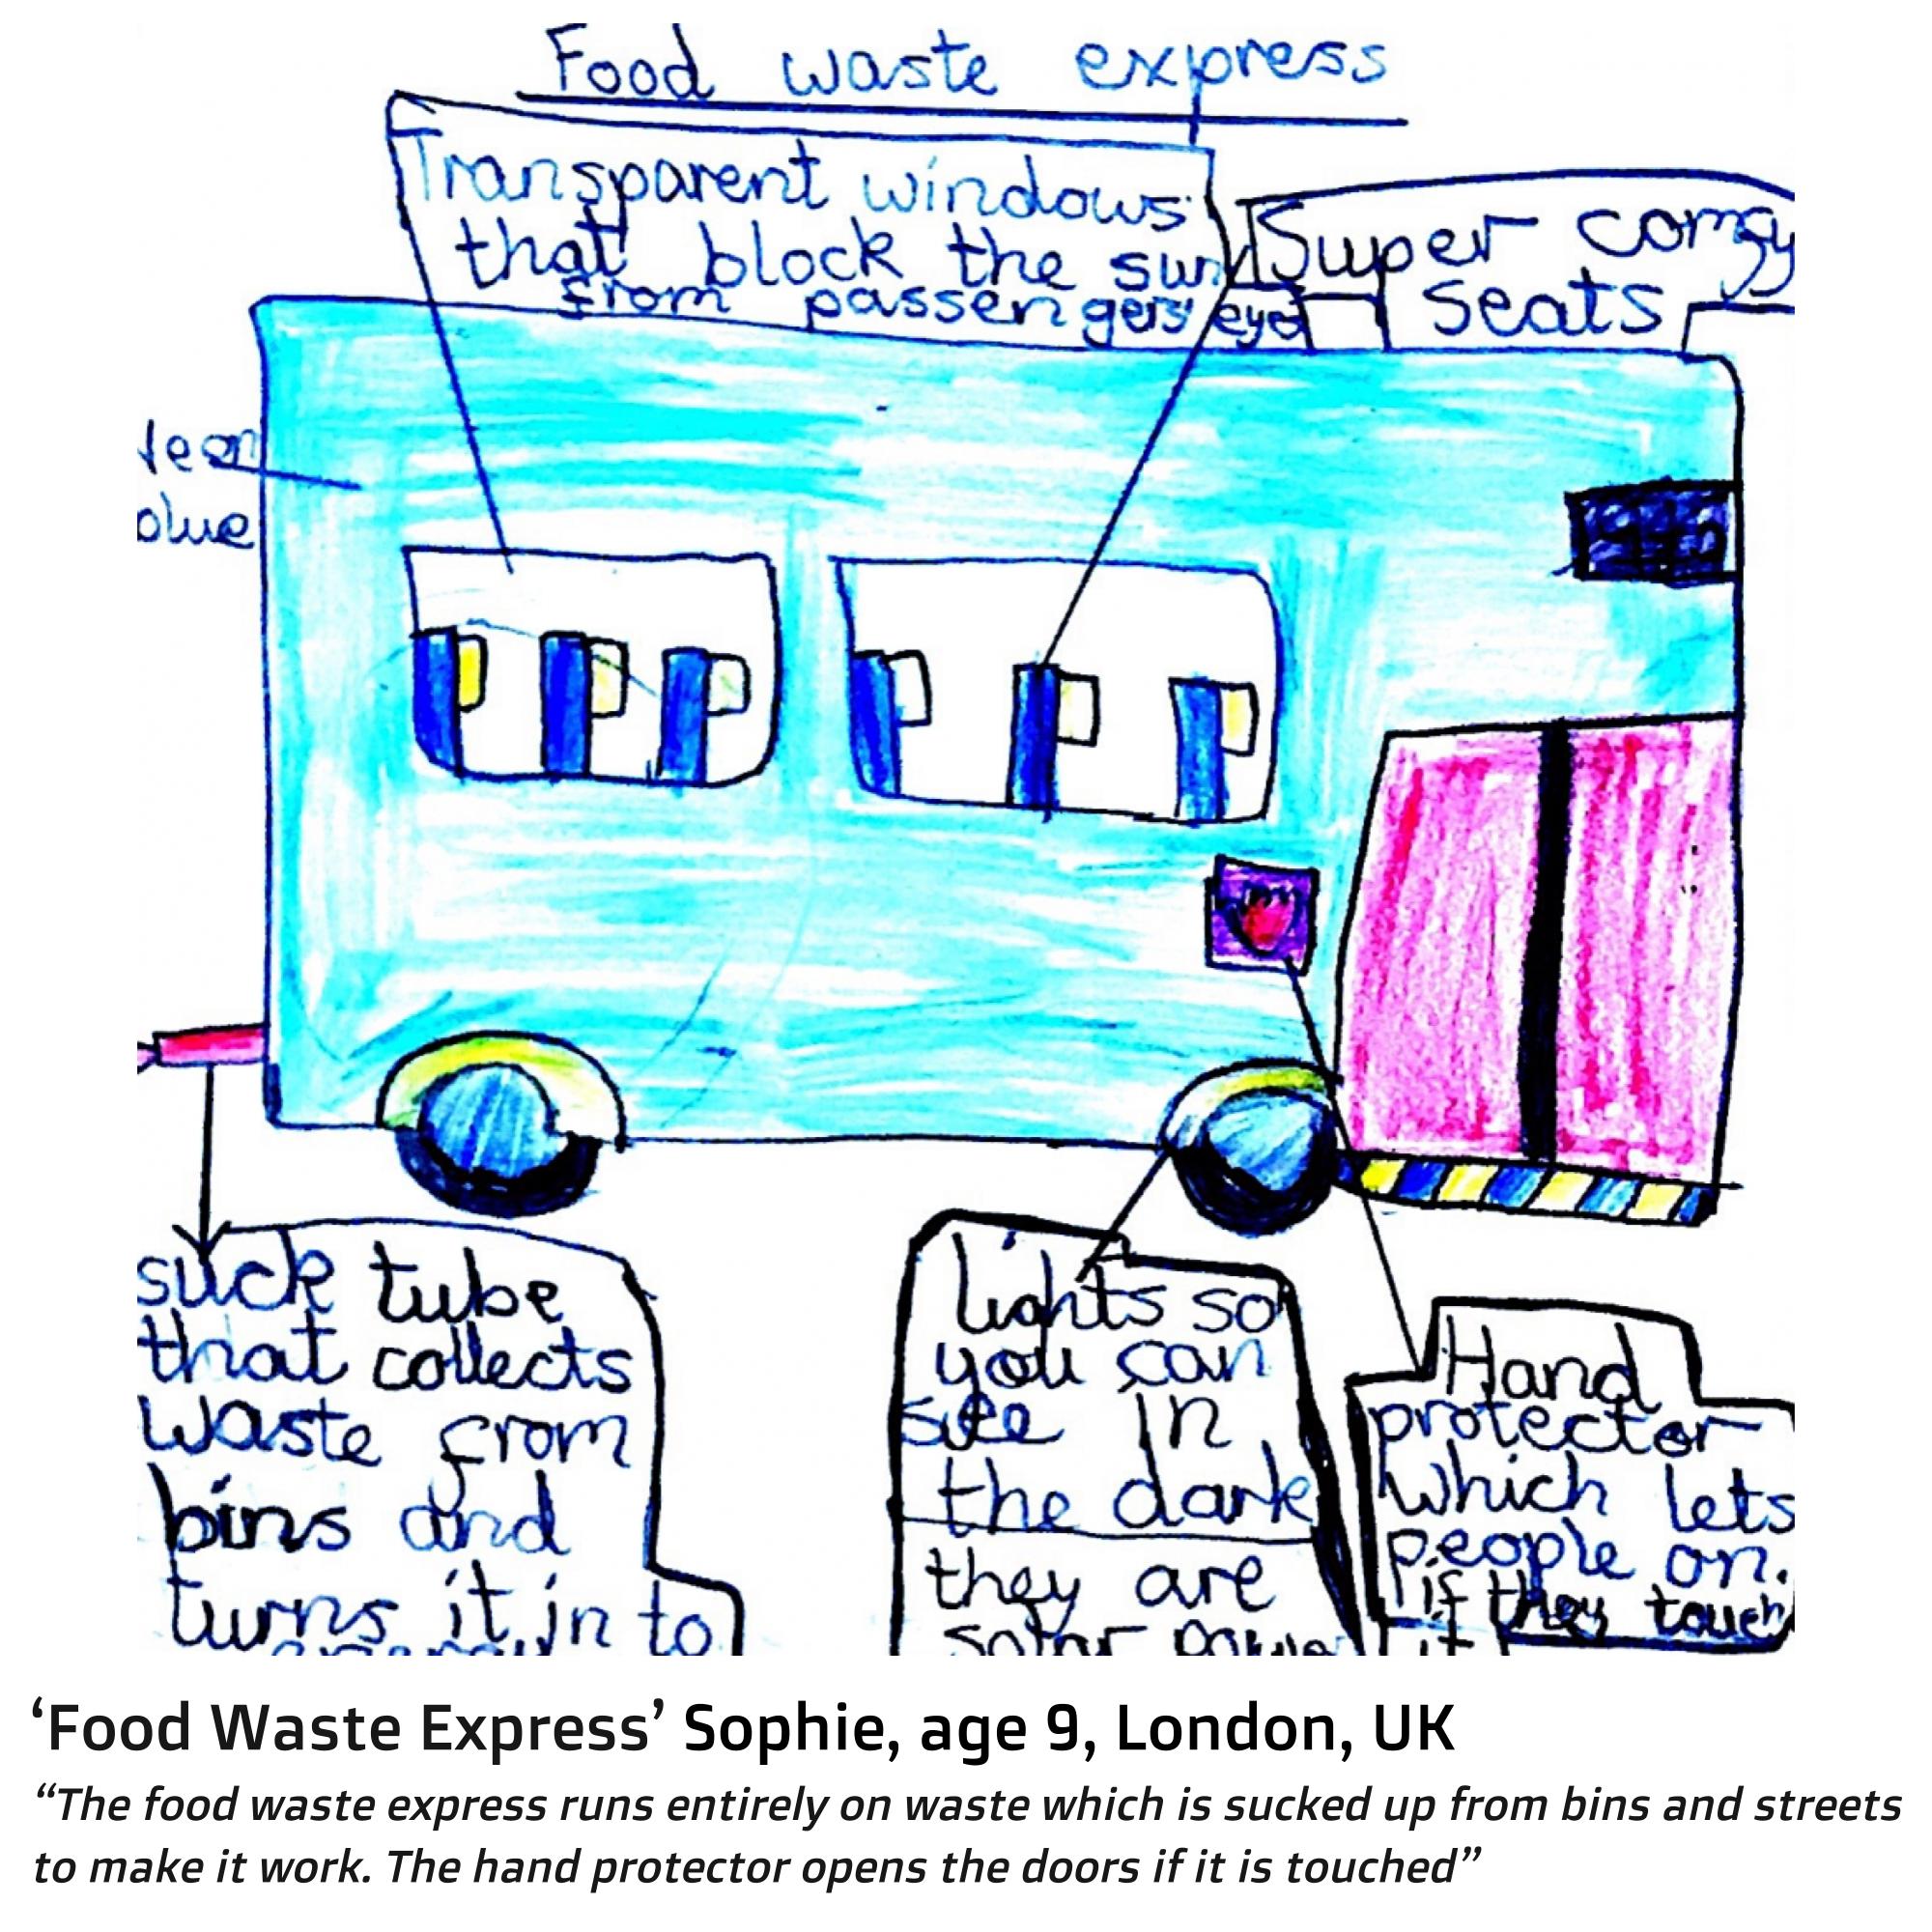 Food waste express
Transparent windows
that block the sun
from passengers' eyes
Super comfy
seats
blue
suck tube
that collects
waste from
bins and
turns it in to
energy
lights so
you can
see in
the dark
they are
solar power
Hand
protector
which lets
people on.
if they touch
it
‘Food Waste Express’ Sophie, age 9, London, UK
“The food waste express runs entirely on waste which is sucked up from bins and streets
to make it work. The hand protector opens the doors if it is touched”